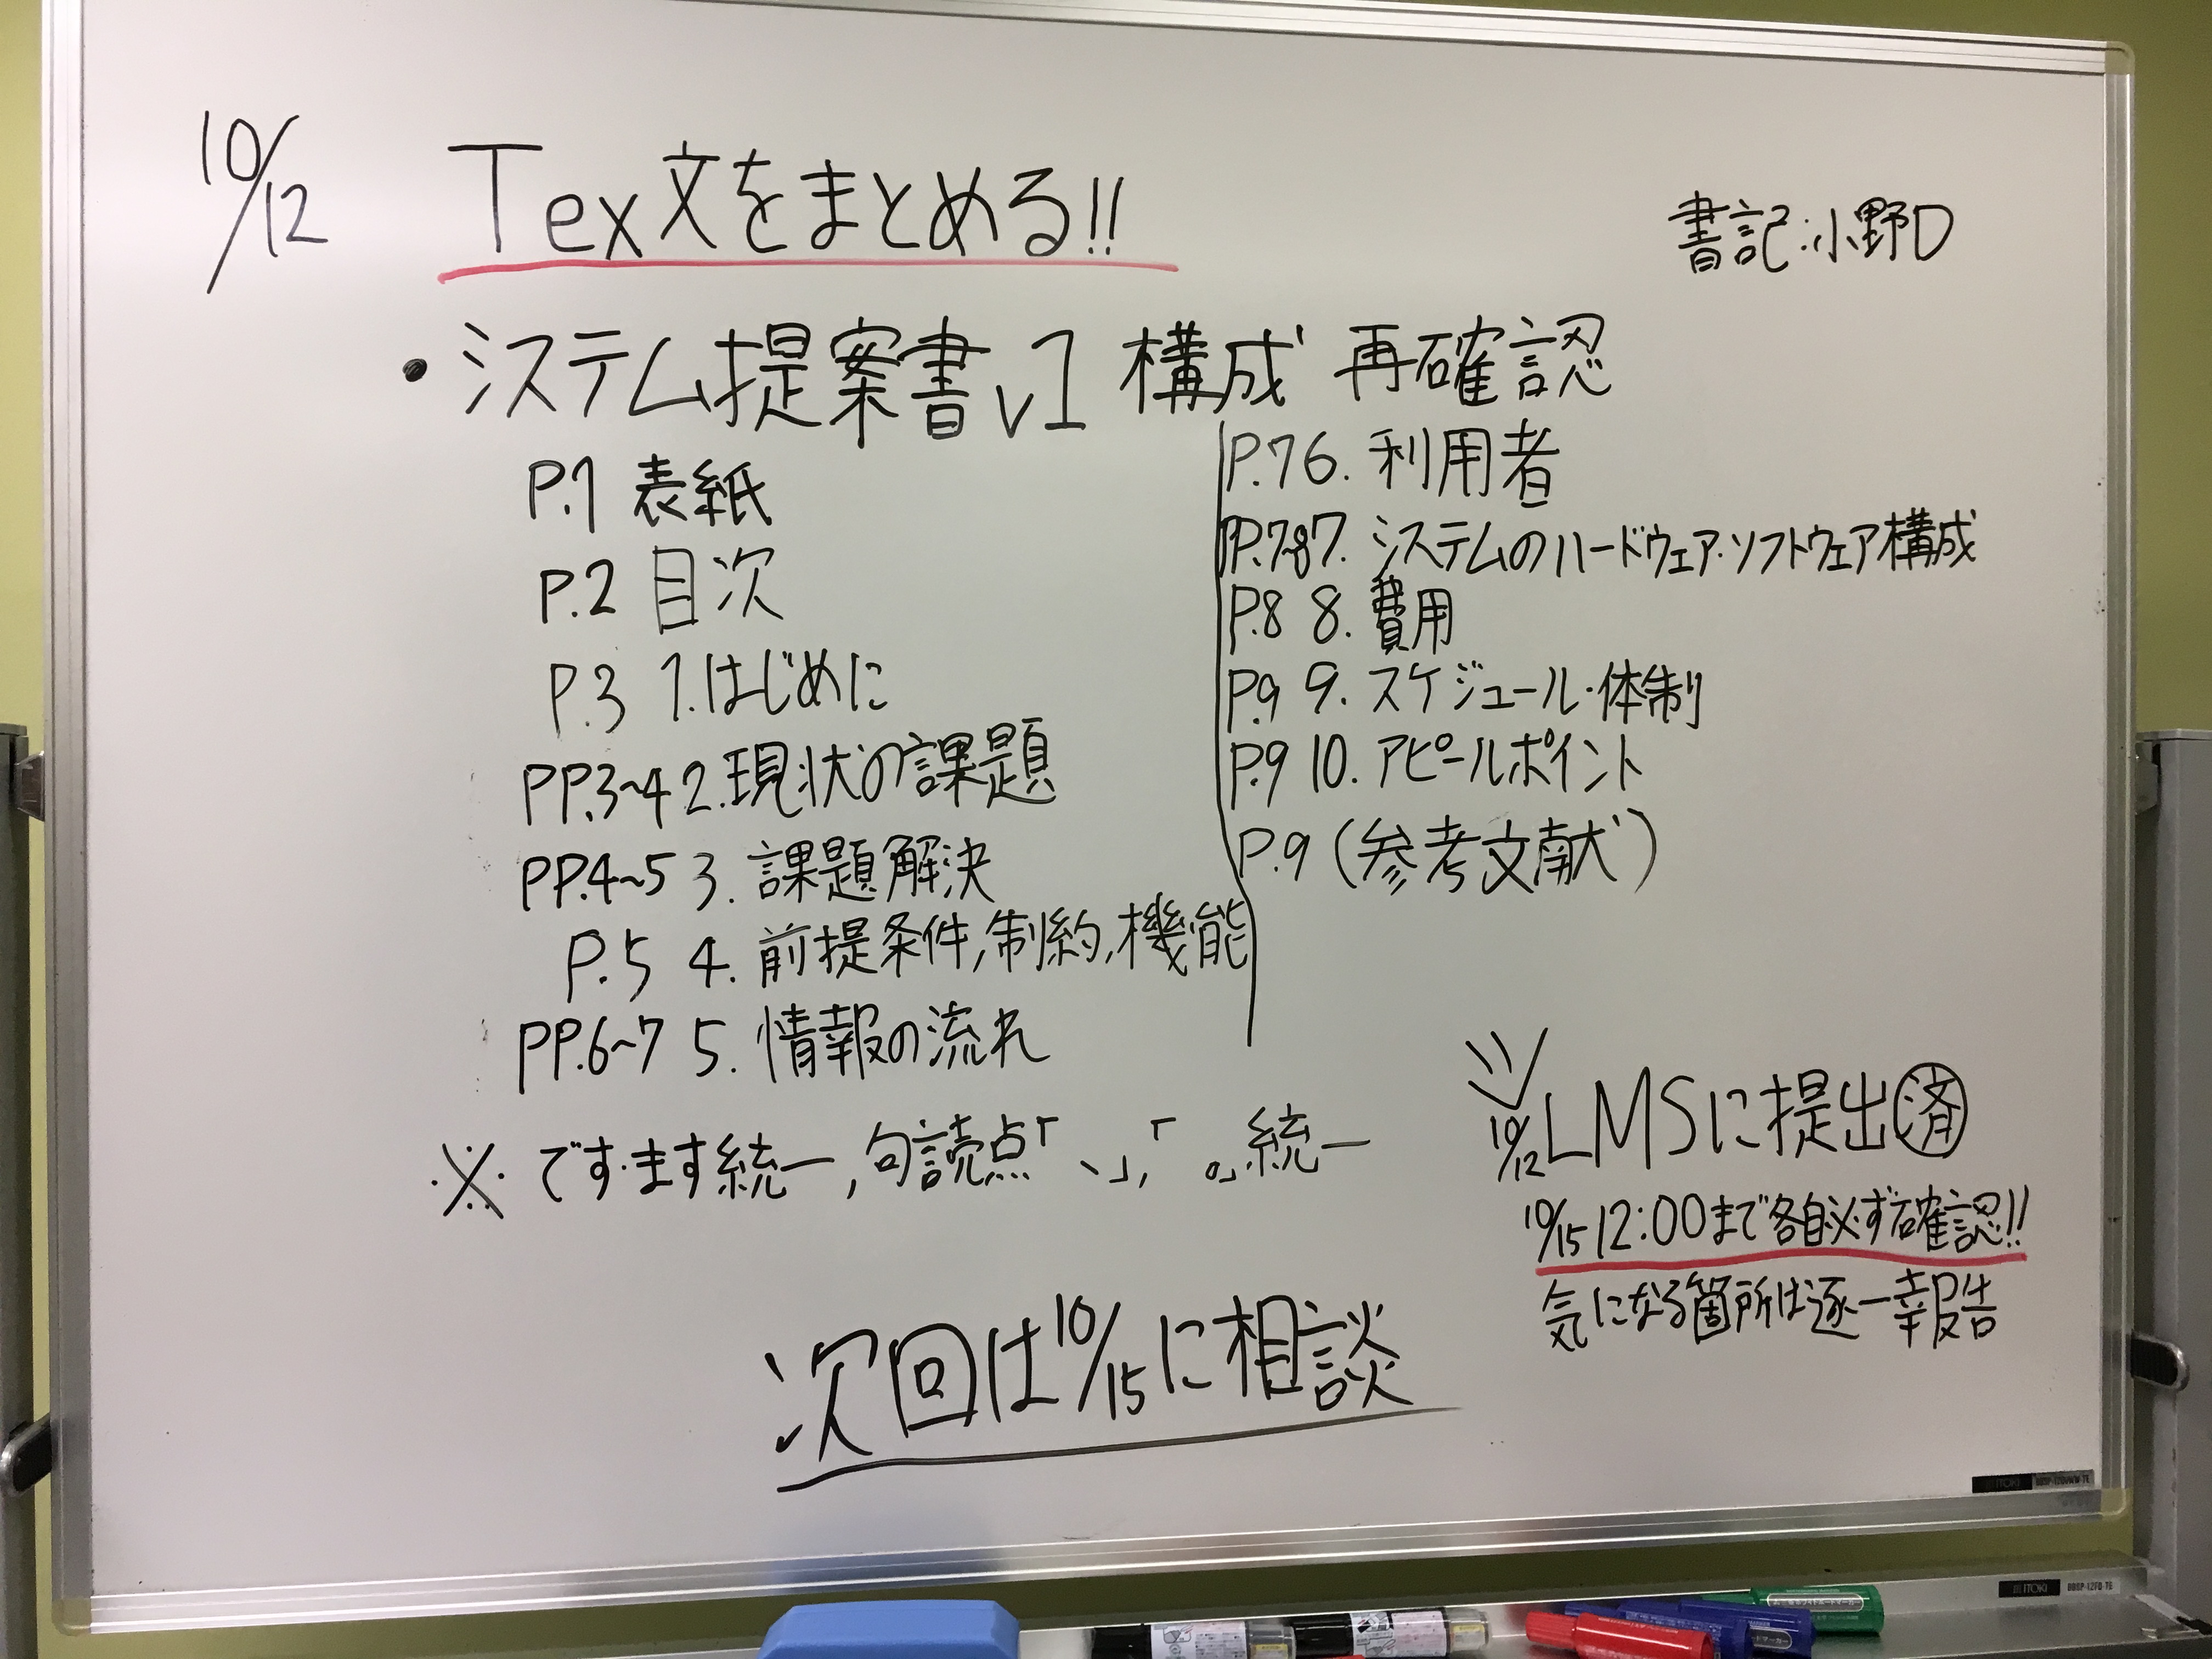 10/12
Tex文をまとめる!!
書記:小野D
・システム提案書v1 構成 再確認
P.1 表紙
P.2 目次
P.3 1.はじめに
PP.3~4 2.現状の課題
PP.4~5 3.課題解決
P.5 4.前提条件,制約,機能
PP.6~7 5.情報の流れ
P.7 6.利用者
PP.7~8 7.システムのハードウェア・ソフトウェア構成
P.8 8.費用
P.9 9.スケジュール・体制
P.9 10.アピールポイント
P.9 (参考文献)
※です・ます統一,句読点「、」,「。」統一
10/12 LMSに提出済
10/15 12:00まで各自必ず確認!!
気になる箇所は逐一報告
次回は10/15に相談
ITOKI
ITOKI